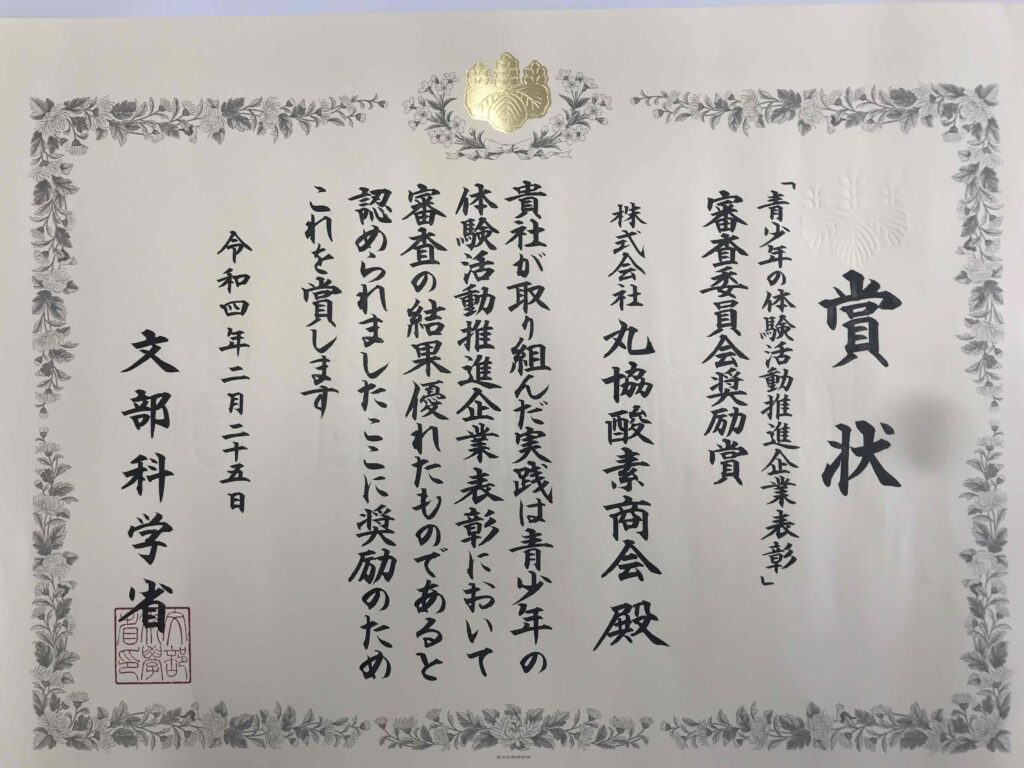 賞状
「青少年の体験活動推進企業表彰」
審査委員会奨励賞
株式会社 丸協酸素商会 殿
貴社が取り組んだ実践は青少年の
体験活動推進企業表彰において
審査の結果優れたものであると
認められましたここに奨励のため
これを賞します
令和四年二月二十五日
文部科学省
文部科學省印